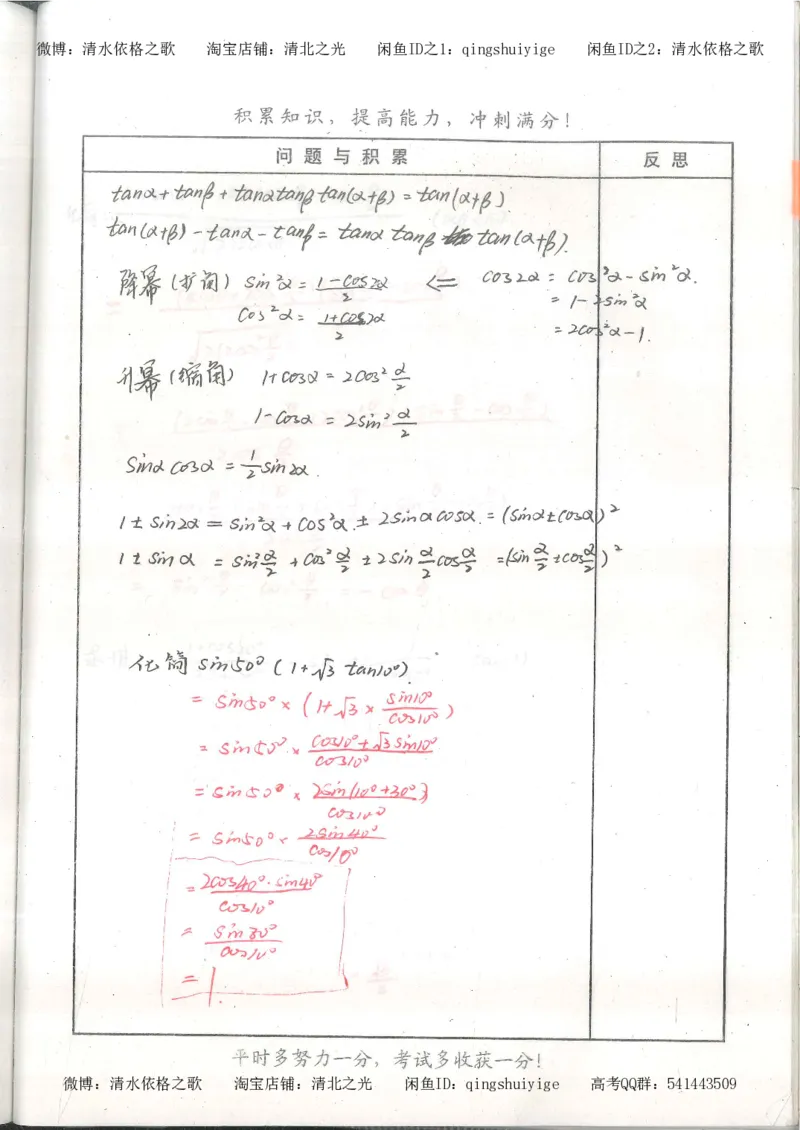 微博：清水依格之歌 淘宝店铺：清北之光 闲鱼ID之1：qingshuiyige 闲鱼ID之2：清水依格之歌
积累知识，提高能力，冲刺满分！
问题与积累 反思
tanα+tanβ+tanαtanβtan(α+β)=tan(α+β)
tan(α+β)-tanα-tanβ=tanαtanβ tan(α+β).
降幂(扩角) sin²α=(1-cos2α)/2 <= cos2α=cos²α-sin²α.
=1-2sin²α
cos²α=(1+cos2α)/2
=2cos²α-1.
升幂(缩角) 1+cosα=2cos²α/2
1-cosα=2sin²α/2
sinαcosα=1/2sin2α.
1±sin2α=sin²α+cos²α±2sinαcosα.=(sinα±cosα)²
1±sinα=sin²α/2+cos²α/2±2sinα/2cosα/2=(sinα/2±cosα/2)²
化简 sin50°(1+√3 tan10°).
=sin50°×(1+√3×sin10°/cos10°)
=sin50°×(cos10°+√3sin10°)/cos10°
=sin50°×2sin(10°+30°)/cos10°
=sin50°×2sin40°/cos10°
=2cos40°·sin40°/cos10°
=sin80°/cos10°
=1.
平时多努力一分，考试多收获一分！
微博：清水依格之歌 淘宝店铺：清北之光 闲鱼ID：qingshuiyige 高考QQ群：541443509